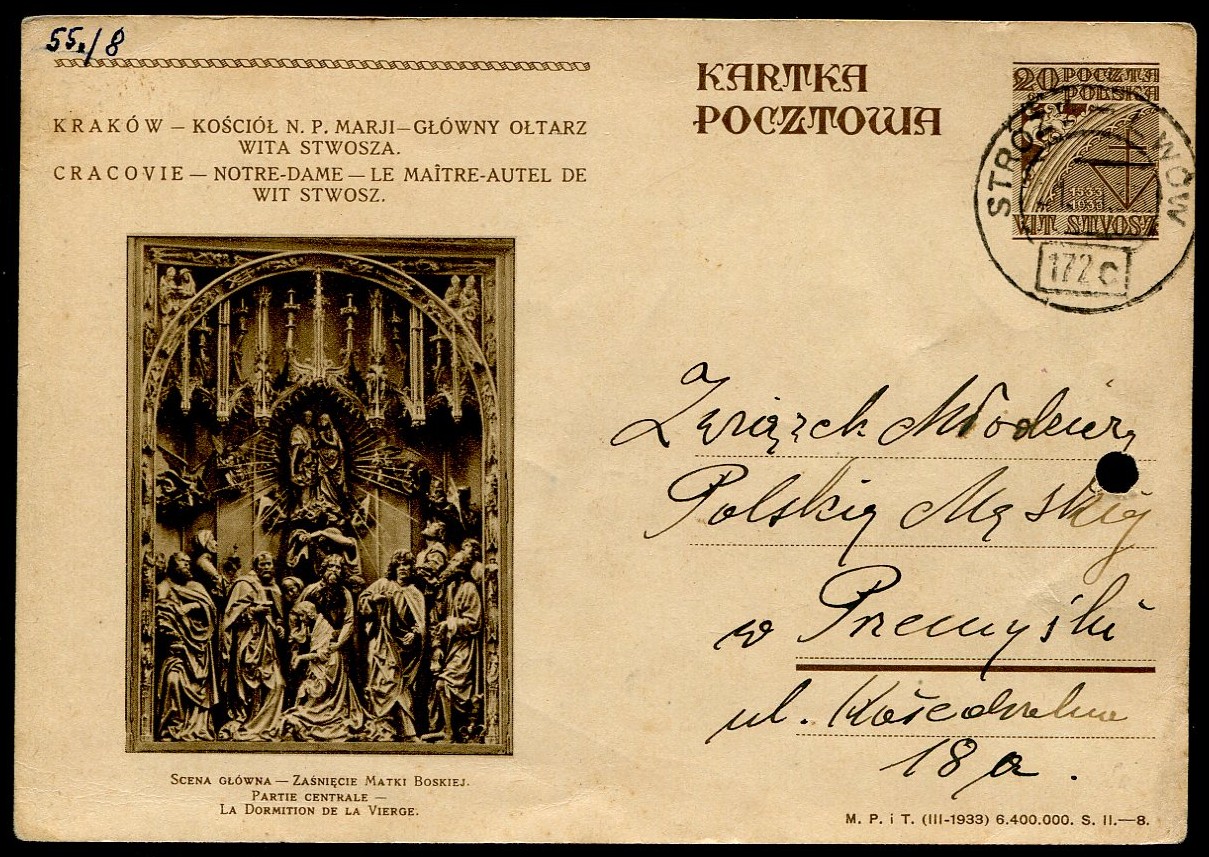 55./8
KRAKÓW — KOŚCIÓŁ N. P. MARJI—GŁÓWNY OŁTARZ
WITA STWOSZA.
CRACOVIE — NOTRE-DAME — LE MAÎTRE-AUTEL DE
WIT STWOSZ.
SCENA GŁÓWNA — ZAŚNIĘCIE MATKI BOSKIEJ.
PARTIE CENTRALE —
LA DORMITION DE LA VIERGE.
KARTKA
POCZTOWA
20 POCZTA
GR POLSKA
1533
1933
WIT STWOSZ
172 c
Związek Młodzieży
Polskiej Męskiej
w Przemyślu
ul. Kościedralna
18 a.
M. P. i T. (III-1933) 6.400.000. S. II.—8.